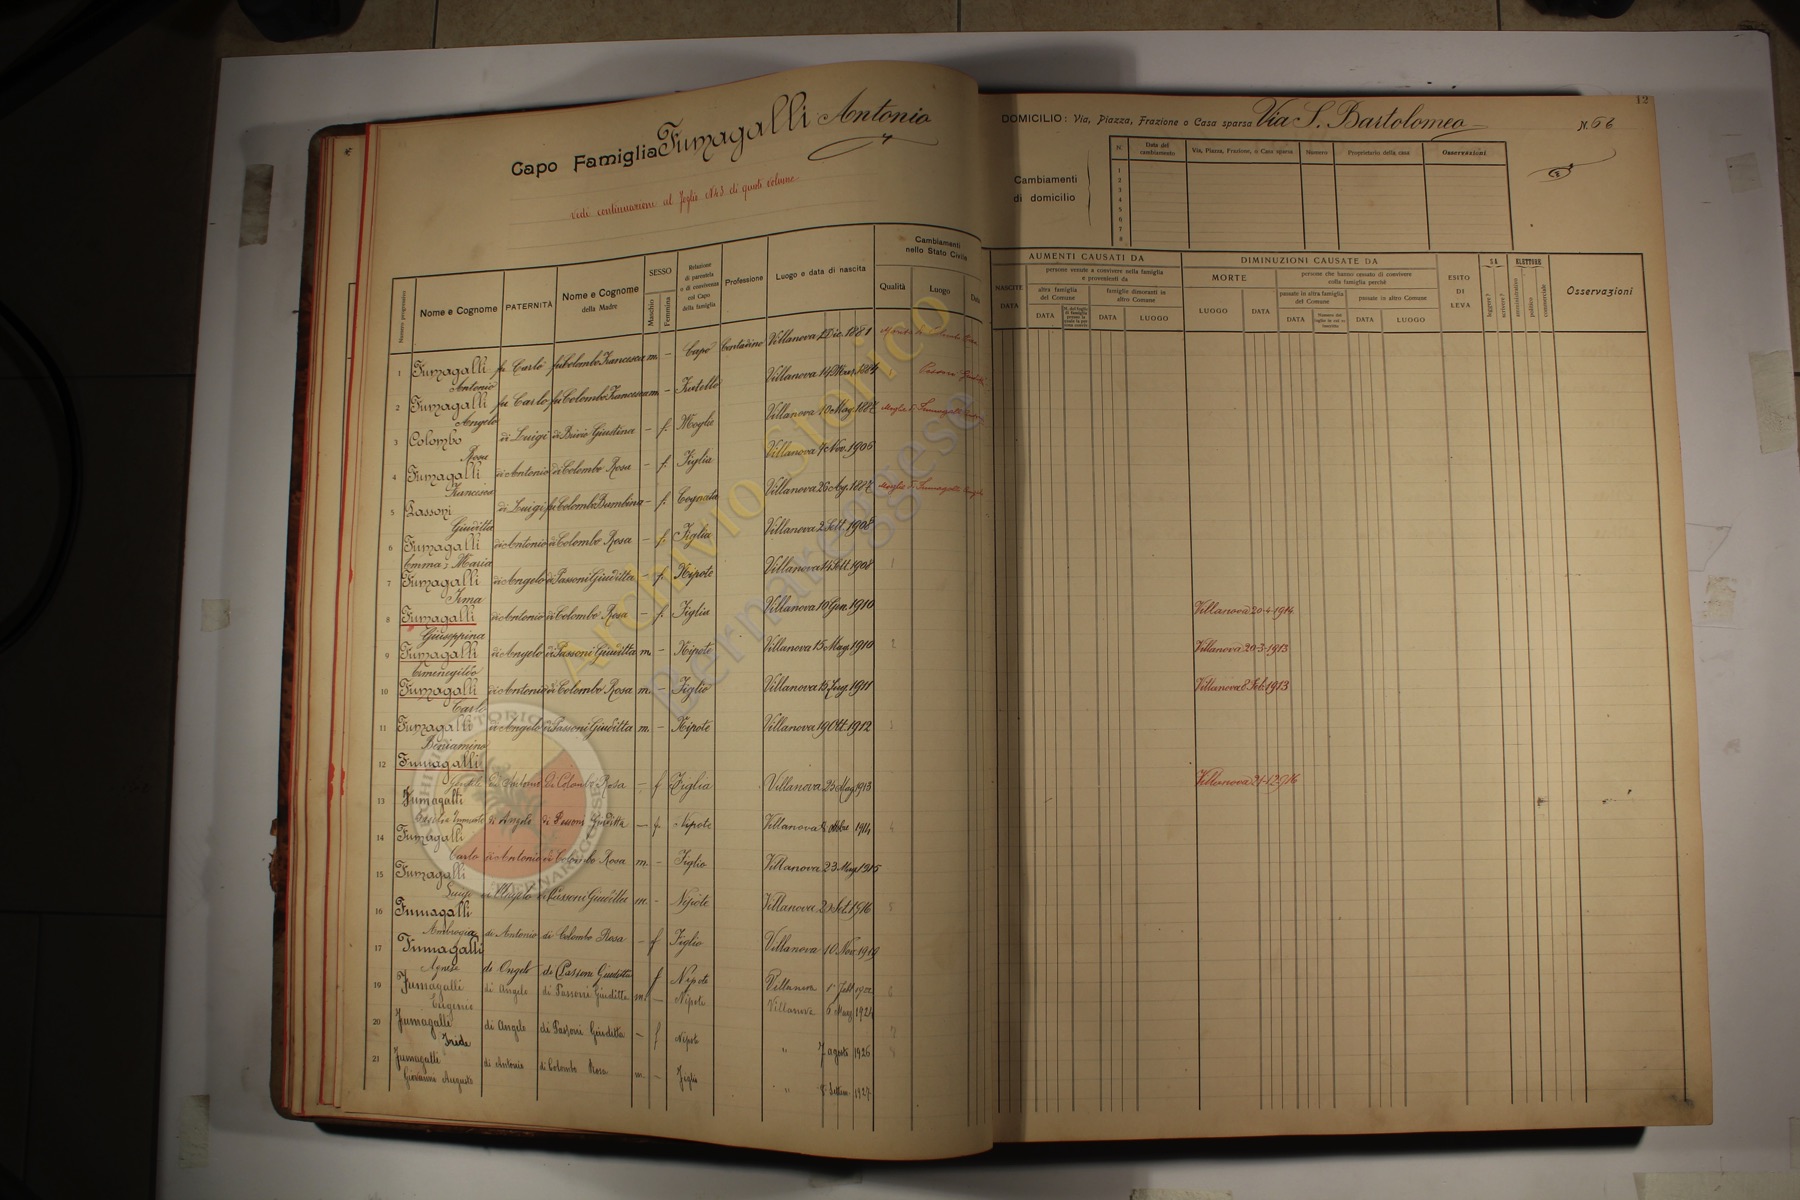 Capo Famiglia Fumagalli Antonio
vedi continuazione al foglio N43 di questo volume
Numero progressivo
Nome e Cognome
PATERNITÀ
Nome e Cognome della Madre
SESSO
Maschio
Femmina
Relazione di parentela o di convivenza col Capo della famiglia
Professione
Luogo e data di nascita
Cambiamenti nello Stato Civile
Qualità
Luogo
Data
1 Fumagalli Antonio fu Carlo fu Colombo Francesca m. – Capo Contadino Villanova 12 Dic. 1881
2 Fumagalli Angelo fu Carlo fu Colombo Francesca m. – Fratello Villanova 14 Mar. 1884
3 Colombo Rosa di Luigi di Brivio Giuditta – f. Moglie Villanova 10 Mag. 1887 Moglie di Fumagalli
4 Fumagalli Francesca di Antonio di Colombo Rosa – f. Figlia Villanova 7 Nov. 1905
5 Passoni Giuditta di Luigi fu Colombo Bambina – f. Cognata Villanova 26 Ag. 1887 Moglie di Fumagalli Angelo
6 Fumagalli Emma; Maria di Antonio di Colombo Rosa – f. Figlia Villanova 2 Sett. 1908
7 Fumagalli Irma di Angelo di Passoni Giuditta – f. Nipote Villanova 14 Sett. 1908 1
8 Fumagalli Giuseppina di Antonio di Colombo Rosa – f. Figlia Villanova 16 Gen. 1910 Villanova 20-4-1914
9 Fumagalli Ermenegildo di Angelo di Passoni Giuditta m. – Nipote Villanova 15 Mag. 1910 2 Villanova 20-3-1913
10 Fumagalli Carlo di Antonio di Colombo Rosa m. – Figlio Villanova 15 1911 Villanova 2 Feb. 1913
11 Fumagalli Beniamino di Angelo di Passoni Giuditta m. – Nipote Villanova 19 Ott. 1912 3
12 Fumagalli di Antonio di Colombo Rosa – f Figlia Villanova 25 Mag 1913 Villanova 21-12-916
13 Fumagalli di Angelo di Passoni Giuditta – f. Nipote Villanova 8 ottobre 1914 4
14 Fumagalli Carlo di Antonio di Colombo Rosa m. – Figlio Villanova 23 Mag. 1915
15 Fumagalli Luigi di Angelo di Passoni Giuditta m. – Nipote Villanova Set. 1916 5
16 Fumagalli Ambrogia di Antonio di Colombo Rosa – f Figlio Villanova 10 Nov. 1919
17 Fumagalli Agnese di Angelo di Passoni Giuditta f Nipote Villanova 1° Febb 6
19 Fumagalli Eugenio di Angelo di Passoni Giuditta m. – Nipote Villanova 6 Mag 1924 7
20 Fumagalli Iride di Angelo di Passoni Giuditta – f Nipote " 7 agosto 1926 8
21 Fumagalli Giovanni Augusto di Antonio di Colombo Rosa m. – Figlio " 8 Settem. 1927
12
DOMICILIO: Via, Piazza, Frazione o Casa sparsa Via S. Bartolomeo N. 66
Cambiamenti di domicilio
N.
Data del cambiamento
Via, Piazza, Frazione, o Casa sparsa
Numero
Proprietario della casa
Osservazioni
1
2
3
4
5
6
7
8
AUMENTI CAUSATI DA
NASCITE
DATA
persone venute a convivere nella famiglia e provenienti da
altra famiglia del Comune
famiglie dimoranti in altro Comune
DATA
DATA
LUOGO
DIMINUZIONI CAUSATE DA
MORTE
LUOGO
DATA
persone che hanno cessato di convivere colla famiglia perchè
passate in altra famiglia del Comune
passate in altro Comune
DATA
DATA
LUOGO
ESITO DI LEVA
SA
leggere?
scrivere?
ELETTORE
amministrativo
politico
commerciale
Osservazioni
Archivio Storico
Pernareggese
ARCHIVIO STORICO PERNAREGGESE